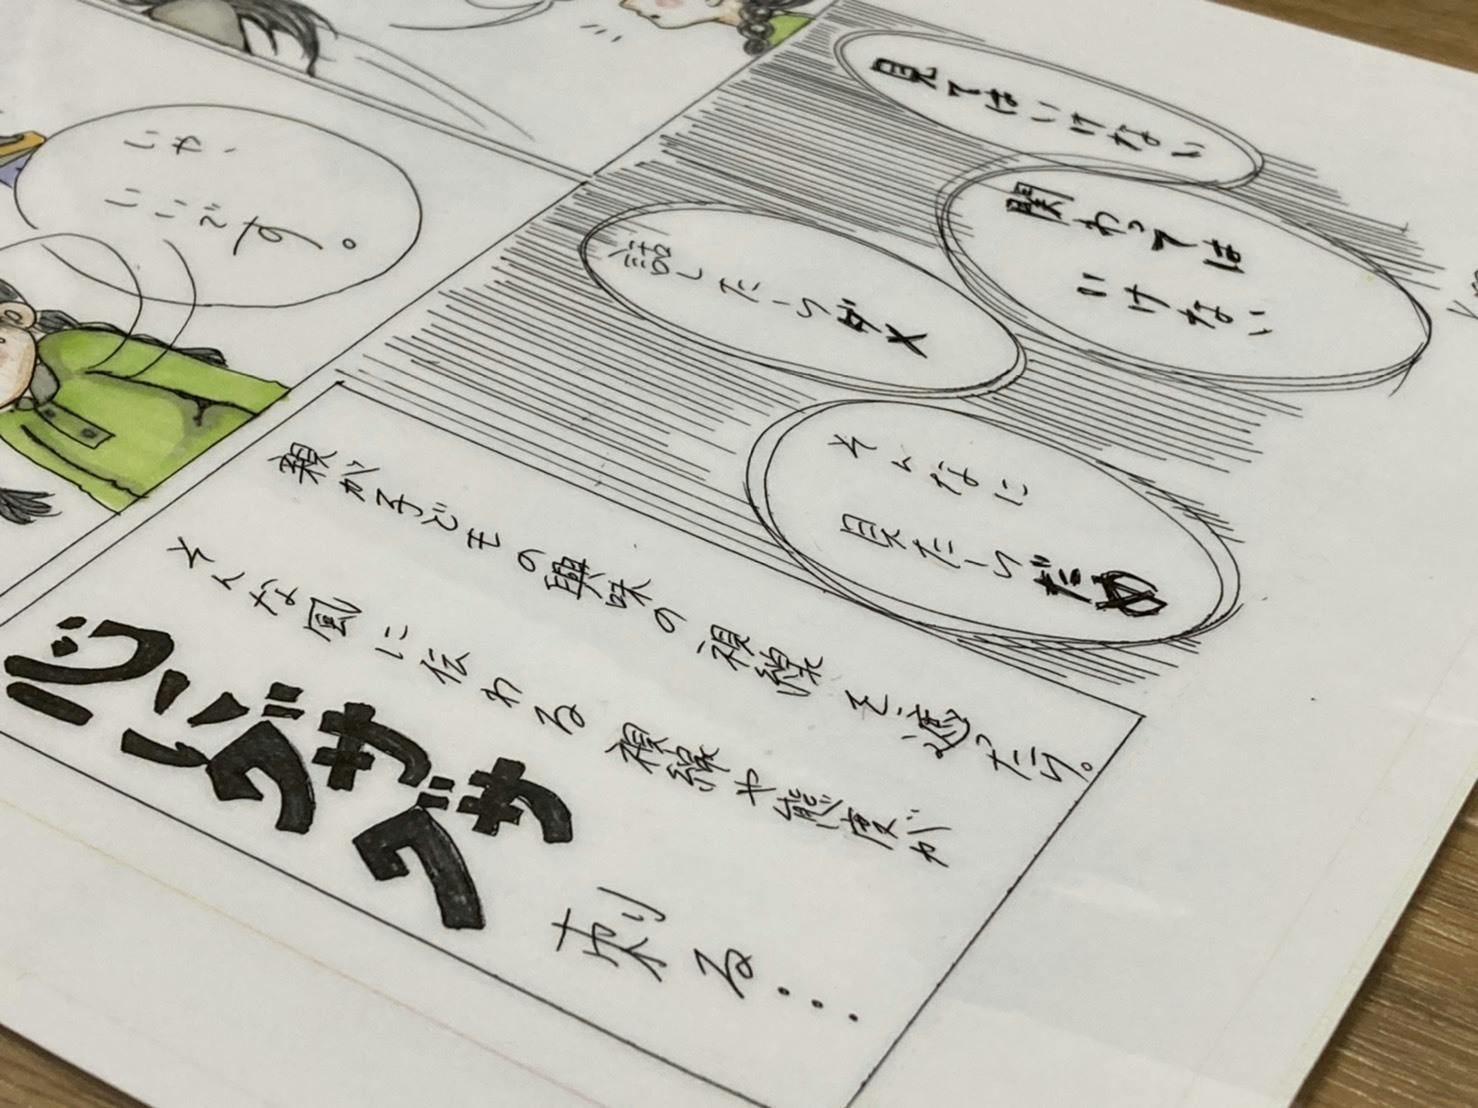 見てはいけない
関わっては
いけない
話したらダメ
そんなに
見たらだめ
親が子どもの興味の視線を遮たり。
そんな風に伝わる視線や態度が
心にグサグサ
刺る...
いいです。